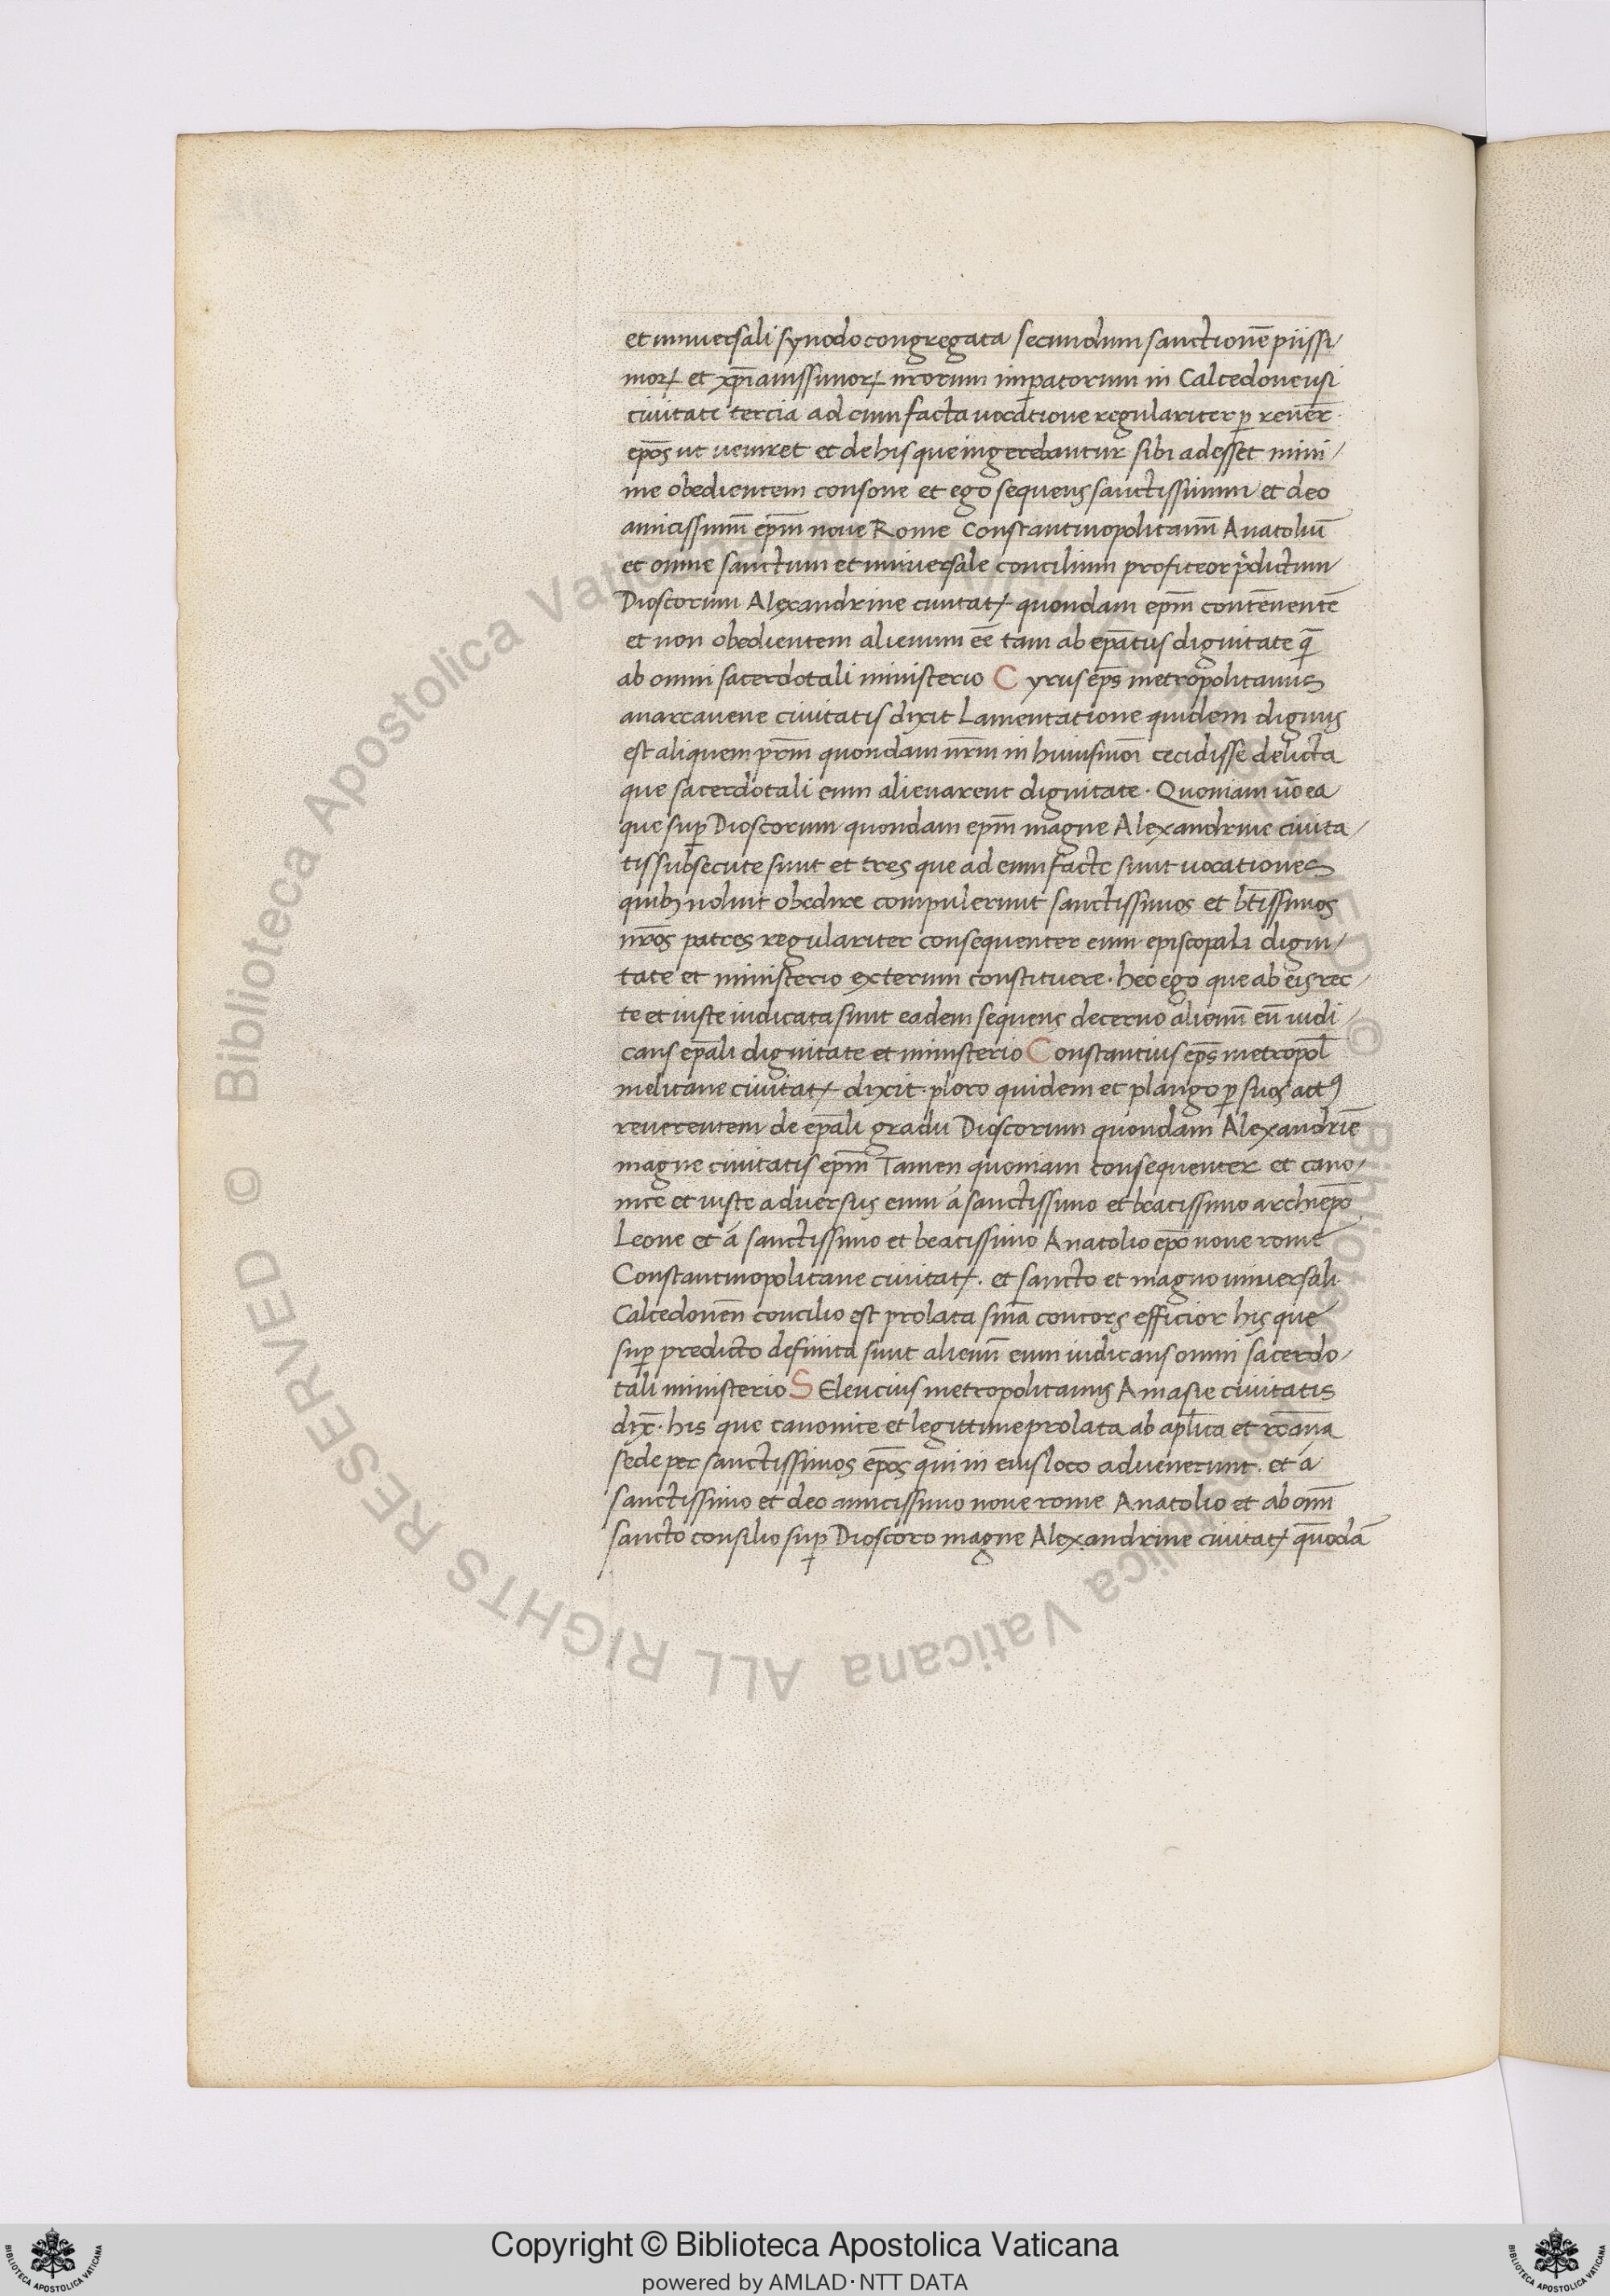 et universali synodo congregata secundum sanctionē piissi/
moꝝ et xp̄ianissimoꝝ nr̄orum imꝑatorum in Calcedonensi
civitate tercia ad eum facta vocatione regulariter ꝑ reuer̄
ep̄os ut veniret et de his que ingerebantur sibi adesset mini/
me obedientem consone et ego sequens sanctissimum et deo
amicissimū ep̄m noue Rome Constantinopolitanū Anatoliū
et omne sanctum et universale concilium profiteor p̄dictum
Dioscorum Alexandrine civitatꝭ quondam ep̄m contēnentē
et non obedientem alienum eē tam ab ep̄atus dignitate q̄
ab omni sacerdotali ministerio Cyrus ep̄s metropolitanus
anarcavene civitatis dixit Lamentatione quidem dignus
est aliquem pr̄m quondam nr̄m in huiusmōi cecidisse delicta
que sacerdotali eum alienarent dignitate. Quoniam ūo ea
que suꝑ Dioscorum quondam ep̄m magne Alexandrine civita/
tis subsecute sunt et tres que ad eum facte sunt vocationes
quibꝫ noluit obedire compulerunt sanctissimos et bt̄issimos
nr̄os patres regulariter consequenter eum episcopali digni/
tate et ministerio exterum constituere. hec ego que ab eis rec/
te et iuste iudicata sunt eadem sequens decerno alienū eū iudi/
cans ep̄ali dignitate et ministerio Constantius ep̄s metropol̄
melitane civitatꝭ dixit. ploro quidem et plango ꝑ suos actꝰ
reuerentem de ep̄ali gradu Dioscorum quondam Alexandriē
magne civitatis ep̄m Tamen quoniam consequenter et cano/
nice et iuste adversus eum á sanctissimo et beatissimo archiep̄o
Leone et á sanctissimo et beatissimo Anatolio ep̄o noue rome
Constantinopolitane civitatꝭ. et sancto et magno universali
Calcedonen̄ concilio est prolata sn̄ia concors efficior his que
suꝑ predicto definita sunt alienū eum iudicans omni sacerdo/
tali ministerio SEleucius metropolitanus Amasie civitatis
dix̄. his que canonice et legittime prolata ab apl̄ica et rōana
sede per sanctissimos ep̄os qui in eius loco advenerunt. et á
sanctissimo et deo amicissimo noue rome Anatolio et ab om̄i
sancto consilio suꝑ Dioscoro magne Alexandrine civitatꝭ quōdā
© Biblioteca Apostolica Vaticana ALL RIGHTS RESERVED © Biblioteca Apostolica Vaticana ALL RIGHTS RESERVED
Copyright © Biblioteca Apostolica Vaticana
powered by AMLAD·NTT DATA
BIBLIOTECA APOSTOLICA VATICANA
BIBLIOTECA APOSTOLICA VATICANA